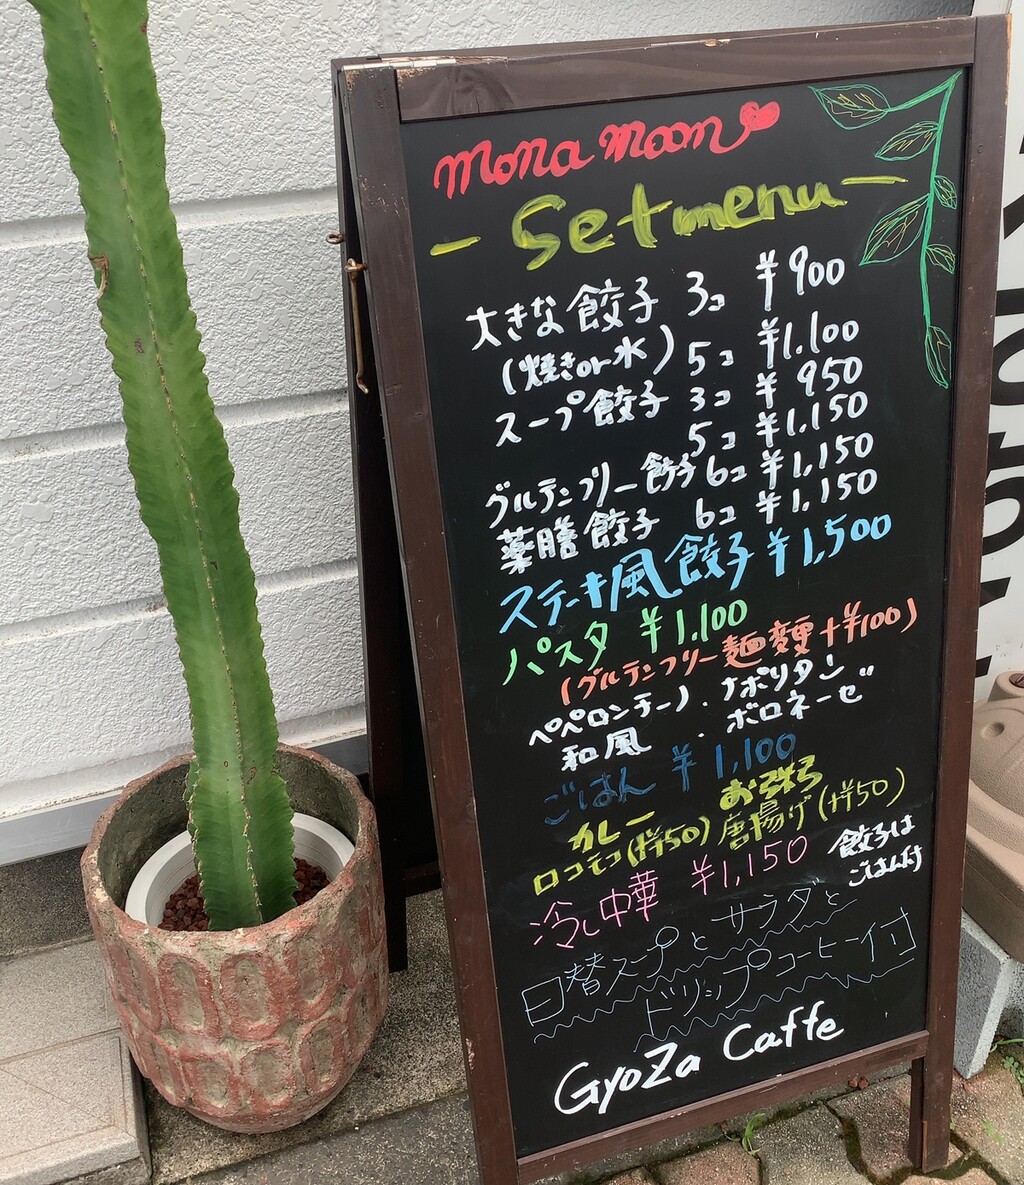 mona moon
- Set menu -
大きな餃子 3コ ¥900
(焼きor水) 5コ ¥1,100
スープ餃子 3コ ¥950
5コ ¥1,150
グルテンフリー餃子 6コ ¥1,150
薬膳餃子 6コ ¥1,150
ステーキ風餃子 ¥1,500
パスタ ¥1,100
(グルテンフリー麺変更+¥100)
ペペロンチーノ・ナポリタン
和風・ボロネーゼ
ごはん ¥1,100
カレー
ロコモコ(+¥50) 唐揚げ(+¥50)
冷し中華 ¥1,150
餃子は
ごはん付
日替スープとサラダと
ドリップコーヒー付
GyoZa Caffe